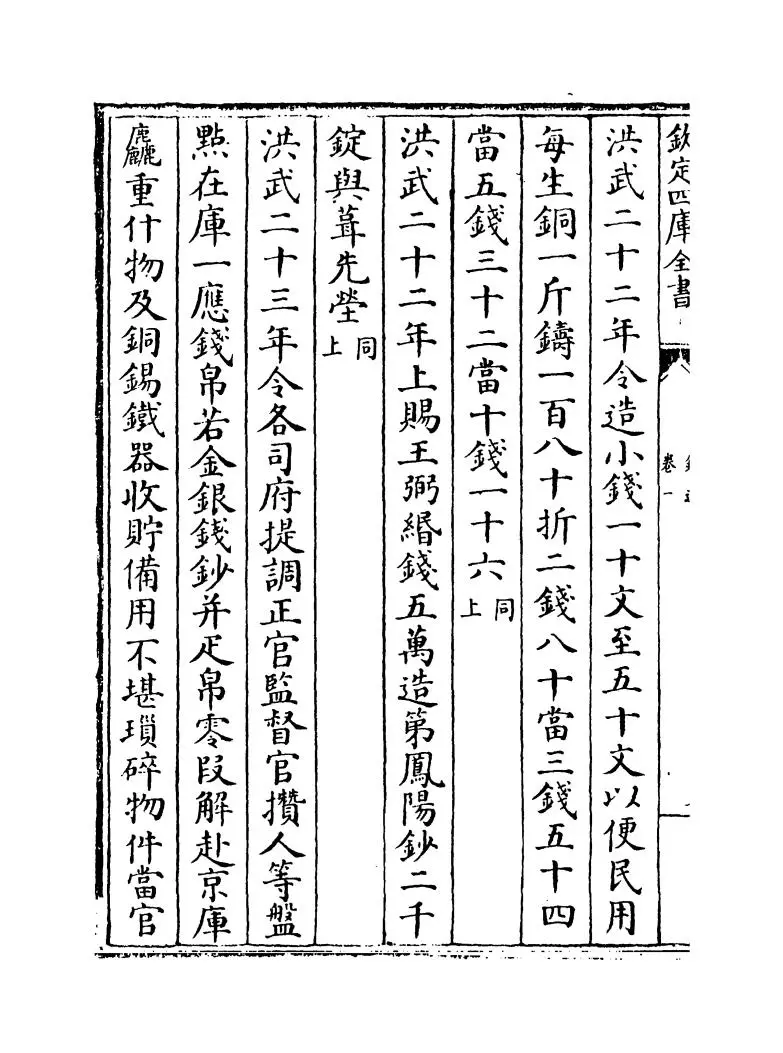 欽定四庫全書
卷一
洪武二十二年令造小錢一十文至五十文以便民用
每生銅一斤鑄一百八十折二錢八十當三錢五十四
當五錢三十二當十錢一十六同上
洪武二十二年上賜王弼緡錢五萬造第鳳陽鈔二千
錠與葺先塋同上
洪武二十三年令各司府提調正官監督官攢人等盤
點在庫一應錢帛若金銀錢鈔并疋帛零段解赴京庫
麤重什物及銅錫鐵器收貯備用不堪瑣碎物件當官